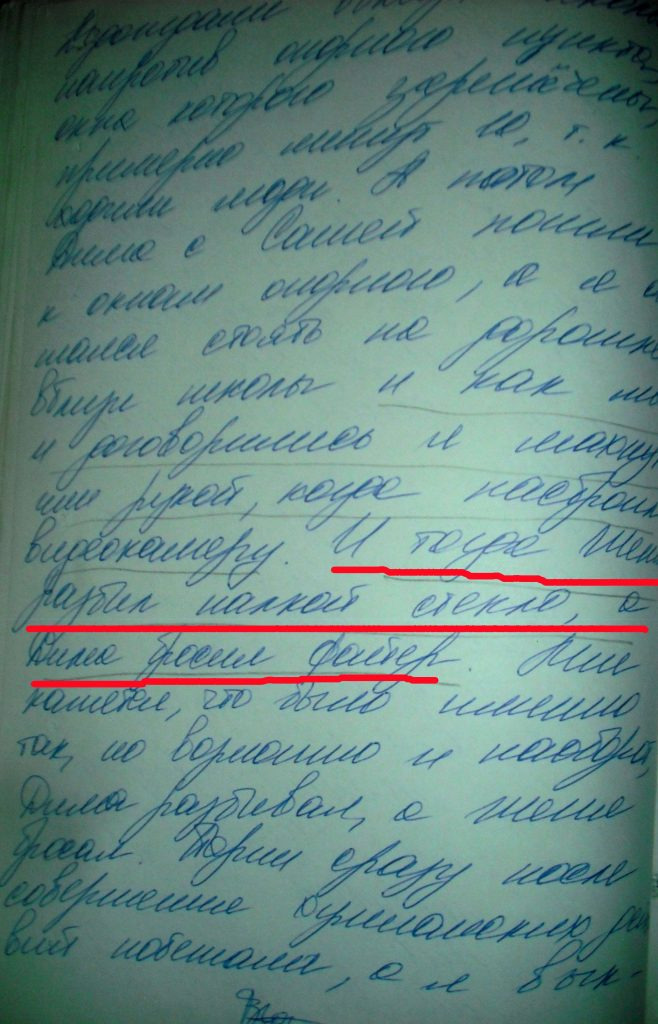 напротив опорного пункта,
окна которого зарешёчены,
примерно минут 10, т. к
ходили люди. А потом
Дима с Сашей пошли
к окнам опорного, а я о
тался стоять на дорожке
вблизи школы и как мы
и договорились я махнул
им рукой, когда настроил
видеокамеру. И тогда
разбил палкой стекло, а
Дима бросил файер. Мне
кажется, что было именно
так, но возможно и наоборот,
Дима разбивал, а
бросал. Парни сразу после
совершения хулиганских дей
вий побежали, а я вык-